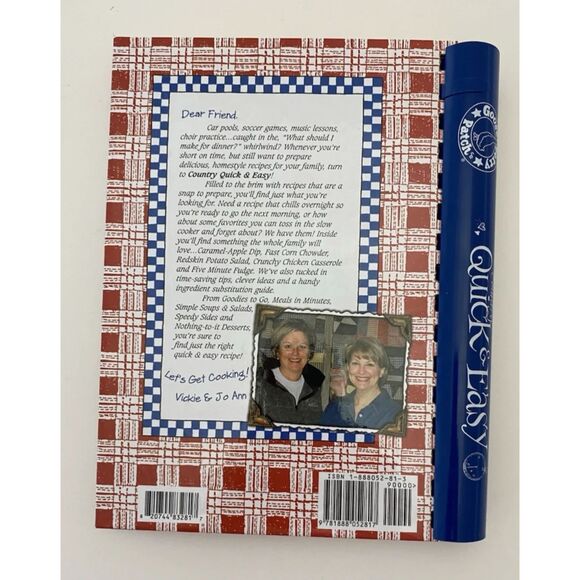 Dear Friend,
Car pools, soccer games, music lessons,
choir practice...caught in the, "What should I
make for dinner?" whirlwind? Whenever you're
short on time, but still want to prepare
delicious, homestyle recipes for your family, turn
to Country Quick & Easy!
Filled to the brim with recipes that are a
snap to prepare, you'll find just what you're
looking for. Need a recipe that chills overnight so
you're ready to go the next morning, or how
about some favorites you can toss in the slow
cooker and forget about? We have them! Inside
you'll find something the whole family will
love...Caramel-Apple Dip, Fast Corn Chowder,
Redskin Potato Salad, Crunchy Chicken Casserole
and Five Minute Fudge. We've also tucked in
time-saving tips, clever ideas and a handy
ingredient substitution guide.
From Goodies to Go, Meals in Minutes,
Simple Soups & Salads,
Speedy Sides and
Nothing-to-it Desserts,
you're sure to
find just the right
quick & easy recipe!
Let's Get Cooking!
Vickie & Jo Ann
8 20744 83281 7
ISBN 1-888052-81-3
90000>
9 781888 052817
Patch
Quick & Easy